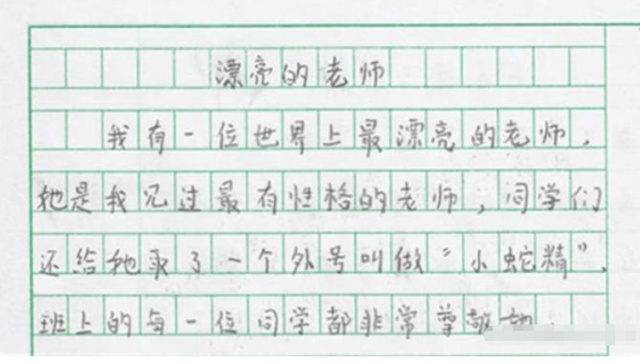 漂亮的老师
我有一位世界上最漂亮的老师.
她是我见过最有性格的老师,同学们
还给她取了一个外号叫做“小蛇精”.
班上的每一位同学都非常尊敬她.